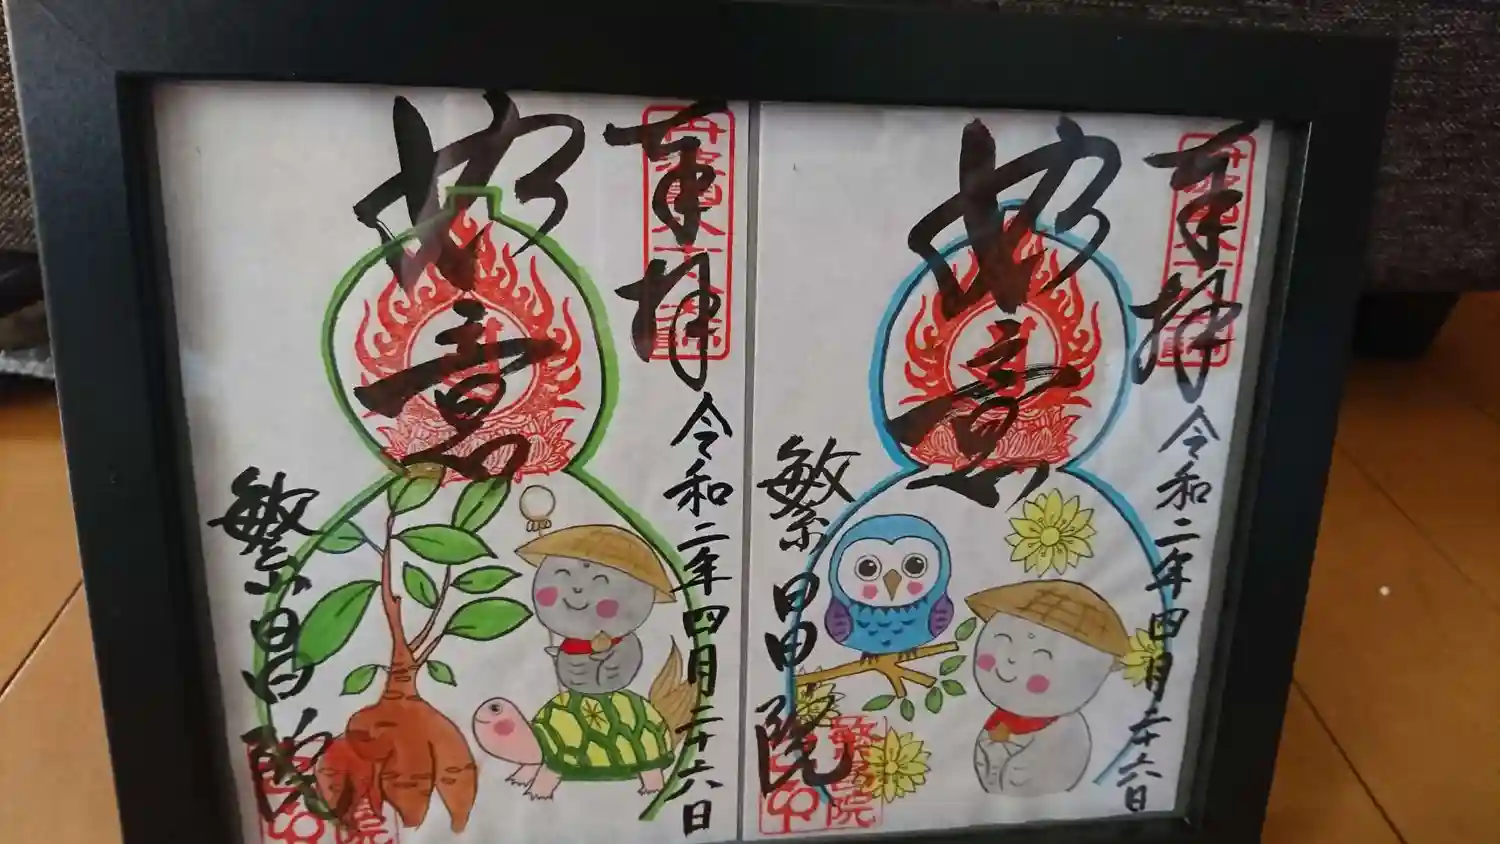 奉拝
令和二年四月二十六日
如意
繁昌院
奉拝
令和二年四月二十六日
如意
繁昌院
繁昌院